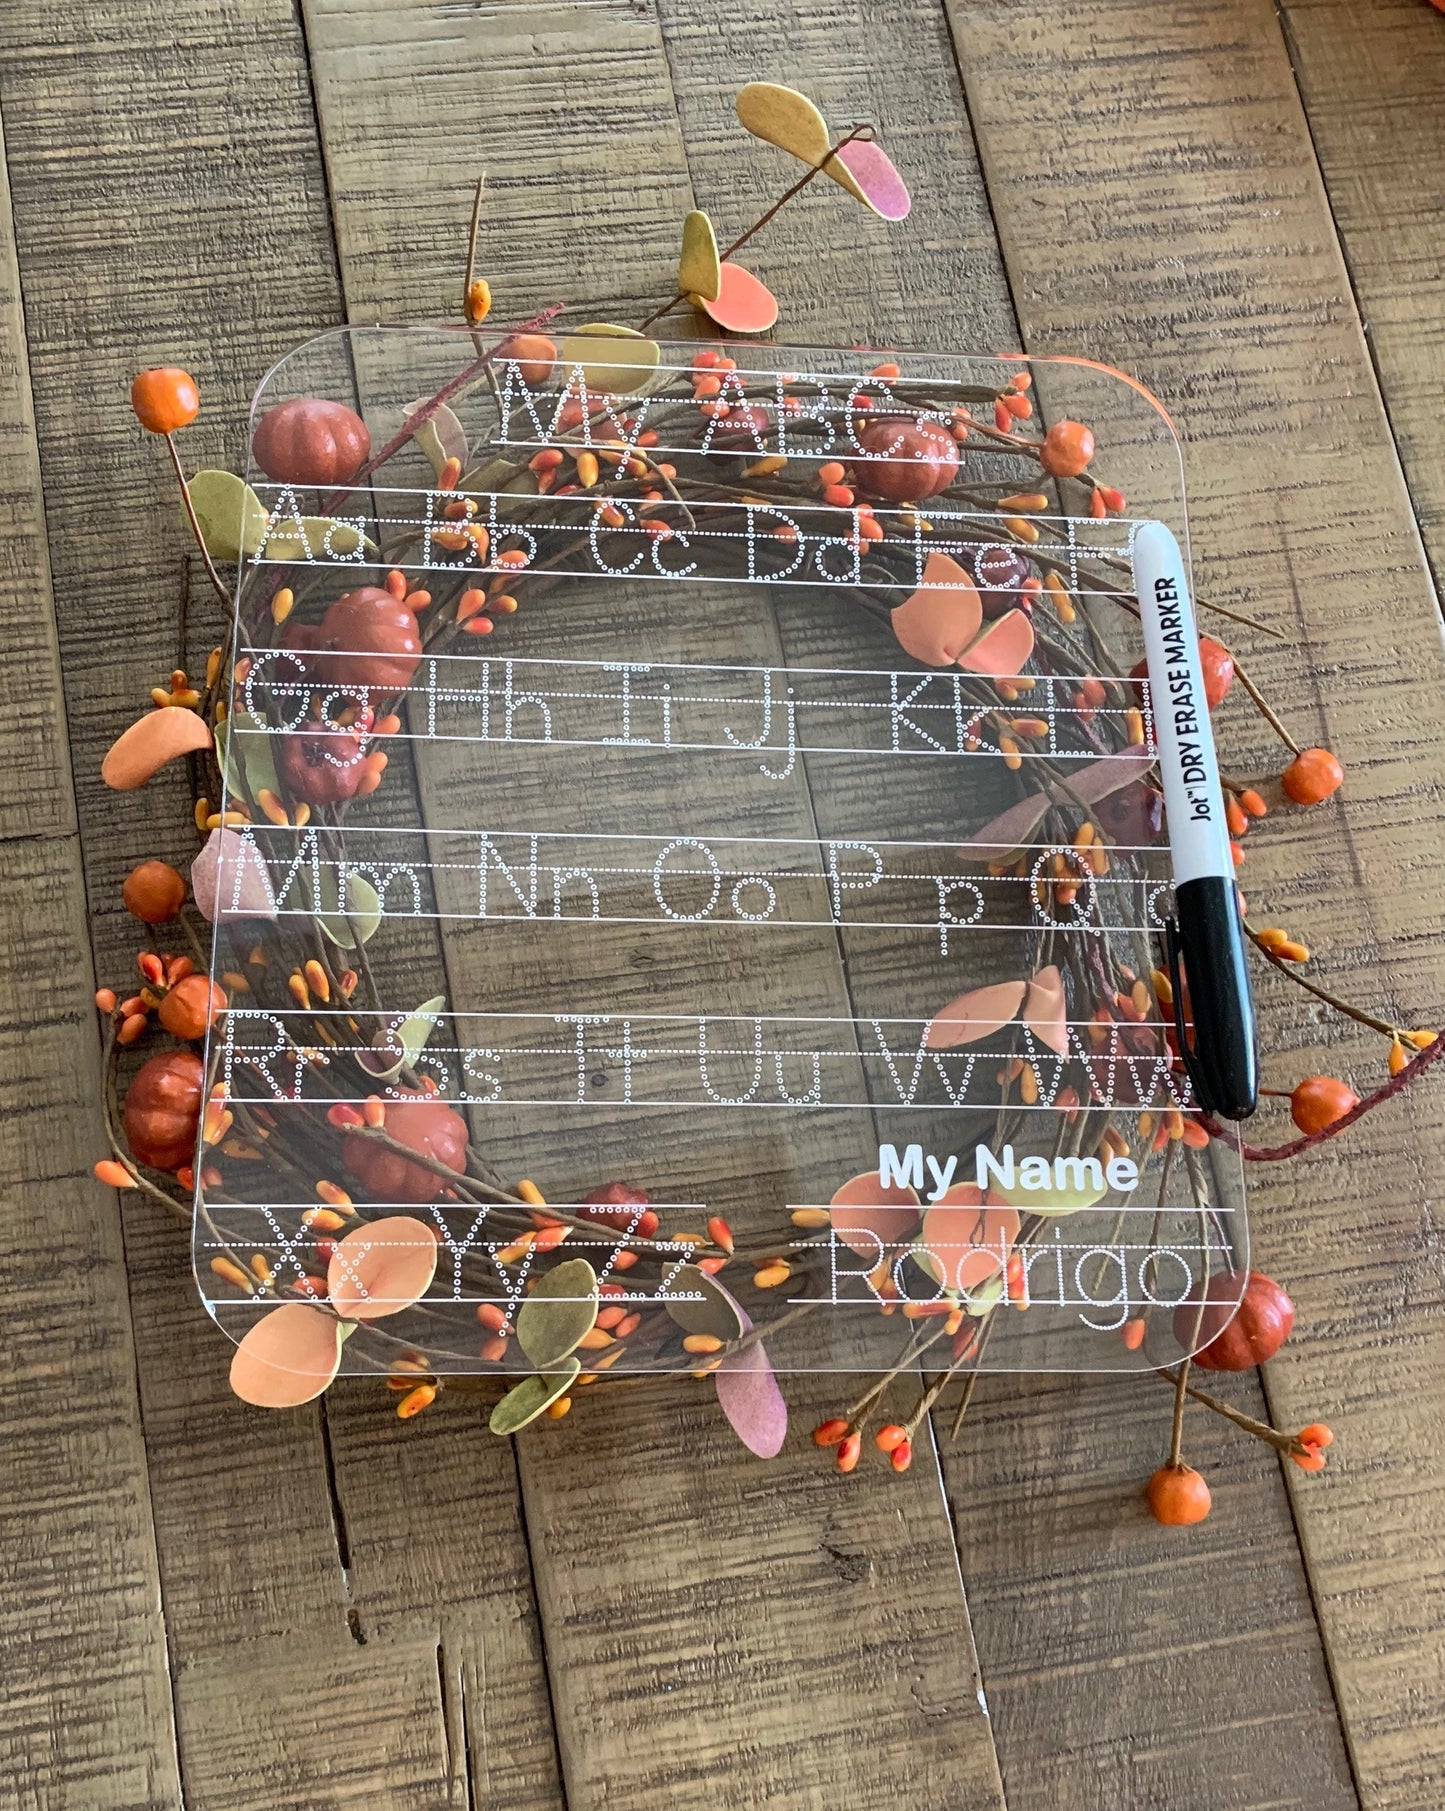 My ABCs
Aa Bb Cc Dd Ee F
Gg Hh Ii Jj Kk L
Mm Nn Oo Pp Qq
Rr Ss Tt Uu Vv Ww
My Name
Xx Yy Zz
Rodrigo
Jot™ DRY ERASE MARKER